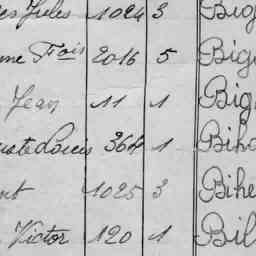 es Jules 1024 3 Big
me Fois 2016 5 Big
Jean 11 1 Big
uste Louis 364 1 Biho
nt 1025 3 Bihe
Victor 120 1 Bil